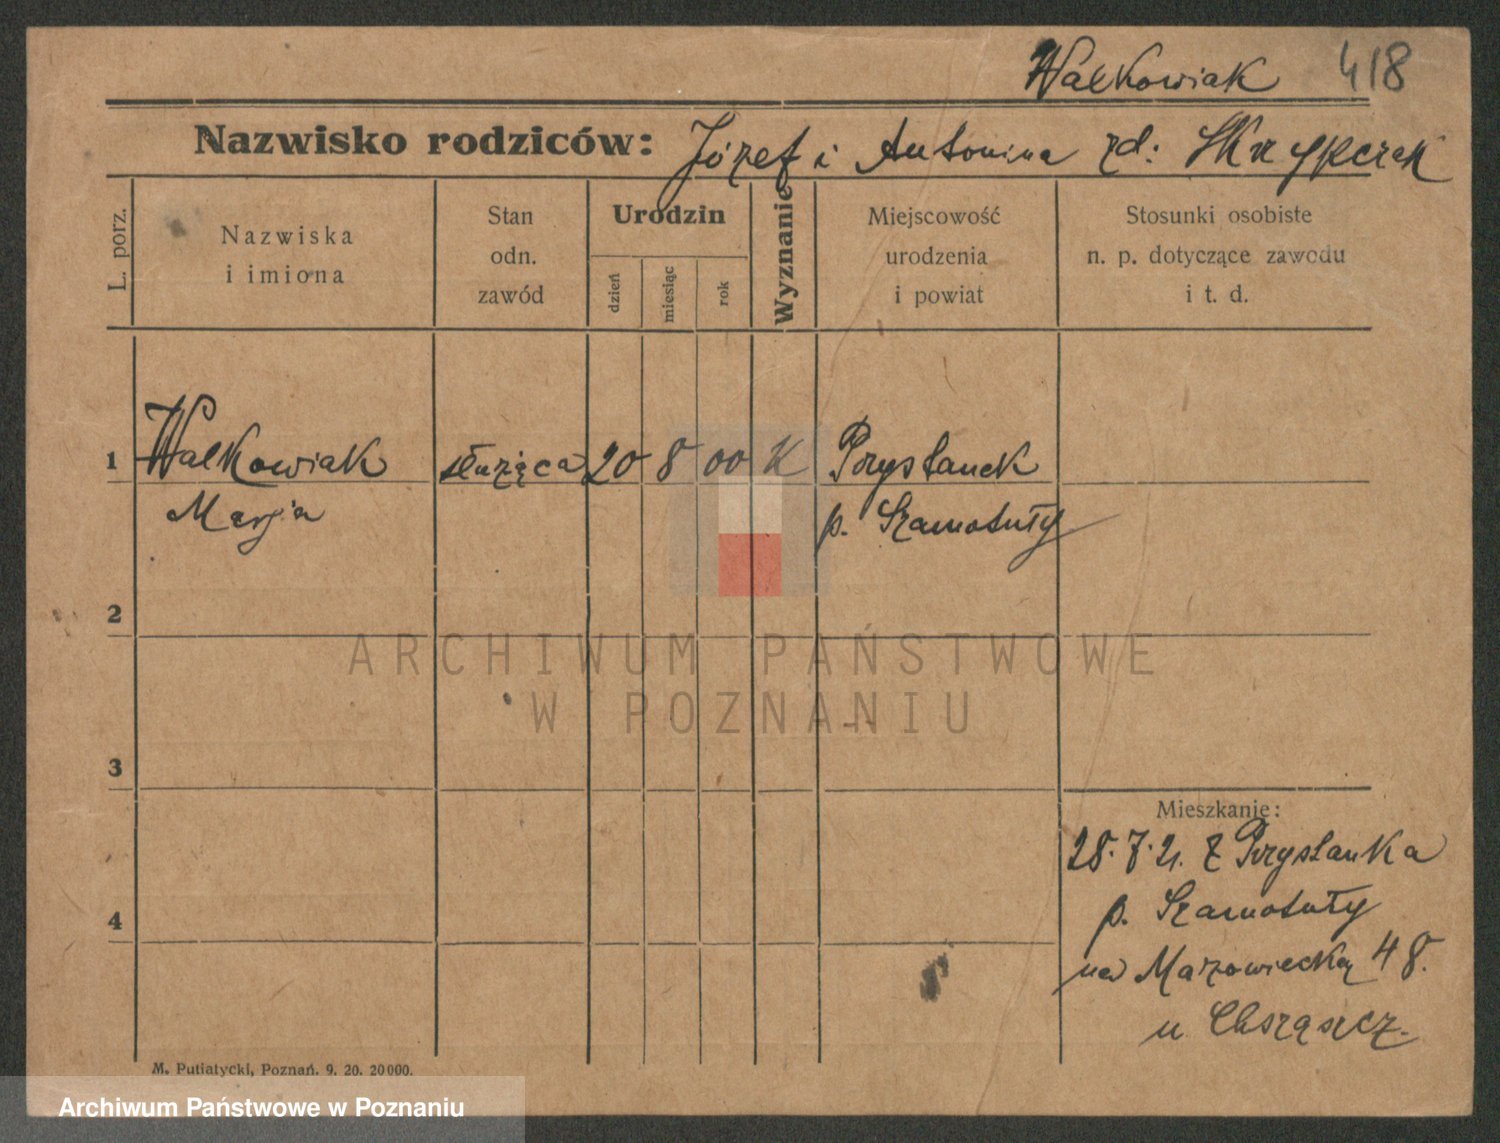 Walkowiak 418
Nazwisko rodziców: Józef i Antonina zd: Skrzypczak
L. porz.
Nazwiska
i imiona
Stan
odn.
zawód
Urodzin
dzień
miesiąc
rok
Wyznanie
Miejscowość
urodzenia
i powiat
Stosunki osobiste
n. p. dotyczące zawodu
i t. d.
1 Walkowiak służąca 20 8 00 K Przystanek
Marja p. Szamotuły
2
ARCHIWUM PAŃSTWOWE
W POZNANIU
3
Mieszkanie:
28.7.21. z Przystanka
p. Szamotuły
4
na Mazowiecką 48.
u Chrząszcz.
M. Putiatycki, Poznań. 9. 20. 20000.
Archiwum Państwowe w Poznaniu